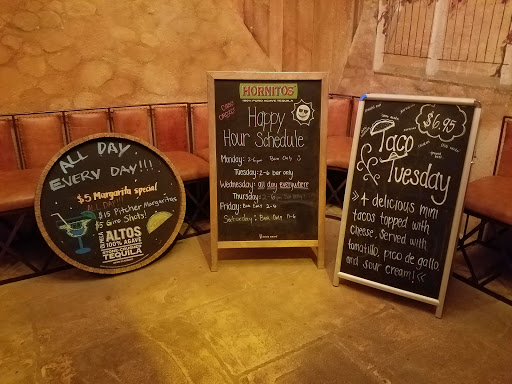 ALL DAY
EVERY DAY!!!
$5 Margarita special
ALL DAY!!
$15 Pitcher Margaritas
$5 Giro Shots!
ALTOS
100% AGAVE
TEQUILA
HORNITOS
100% PURE AGAVE TEQUILA
Happy
Hour Schedule
Monday: 2-6pm Bar Only
Tuesday: 2-6 bar only
Wednesday: all day everywhere
Thursday:
Friday: Bar Only 2-6
Saturday: Bar Only
$6.95
Taco
Tuesday
» 4 delicious mini
tacos topped with
cheese, served with
tomatillo, pico de gallo,
and sour cream! «